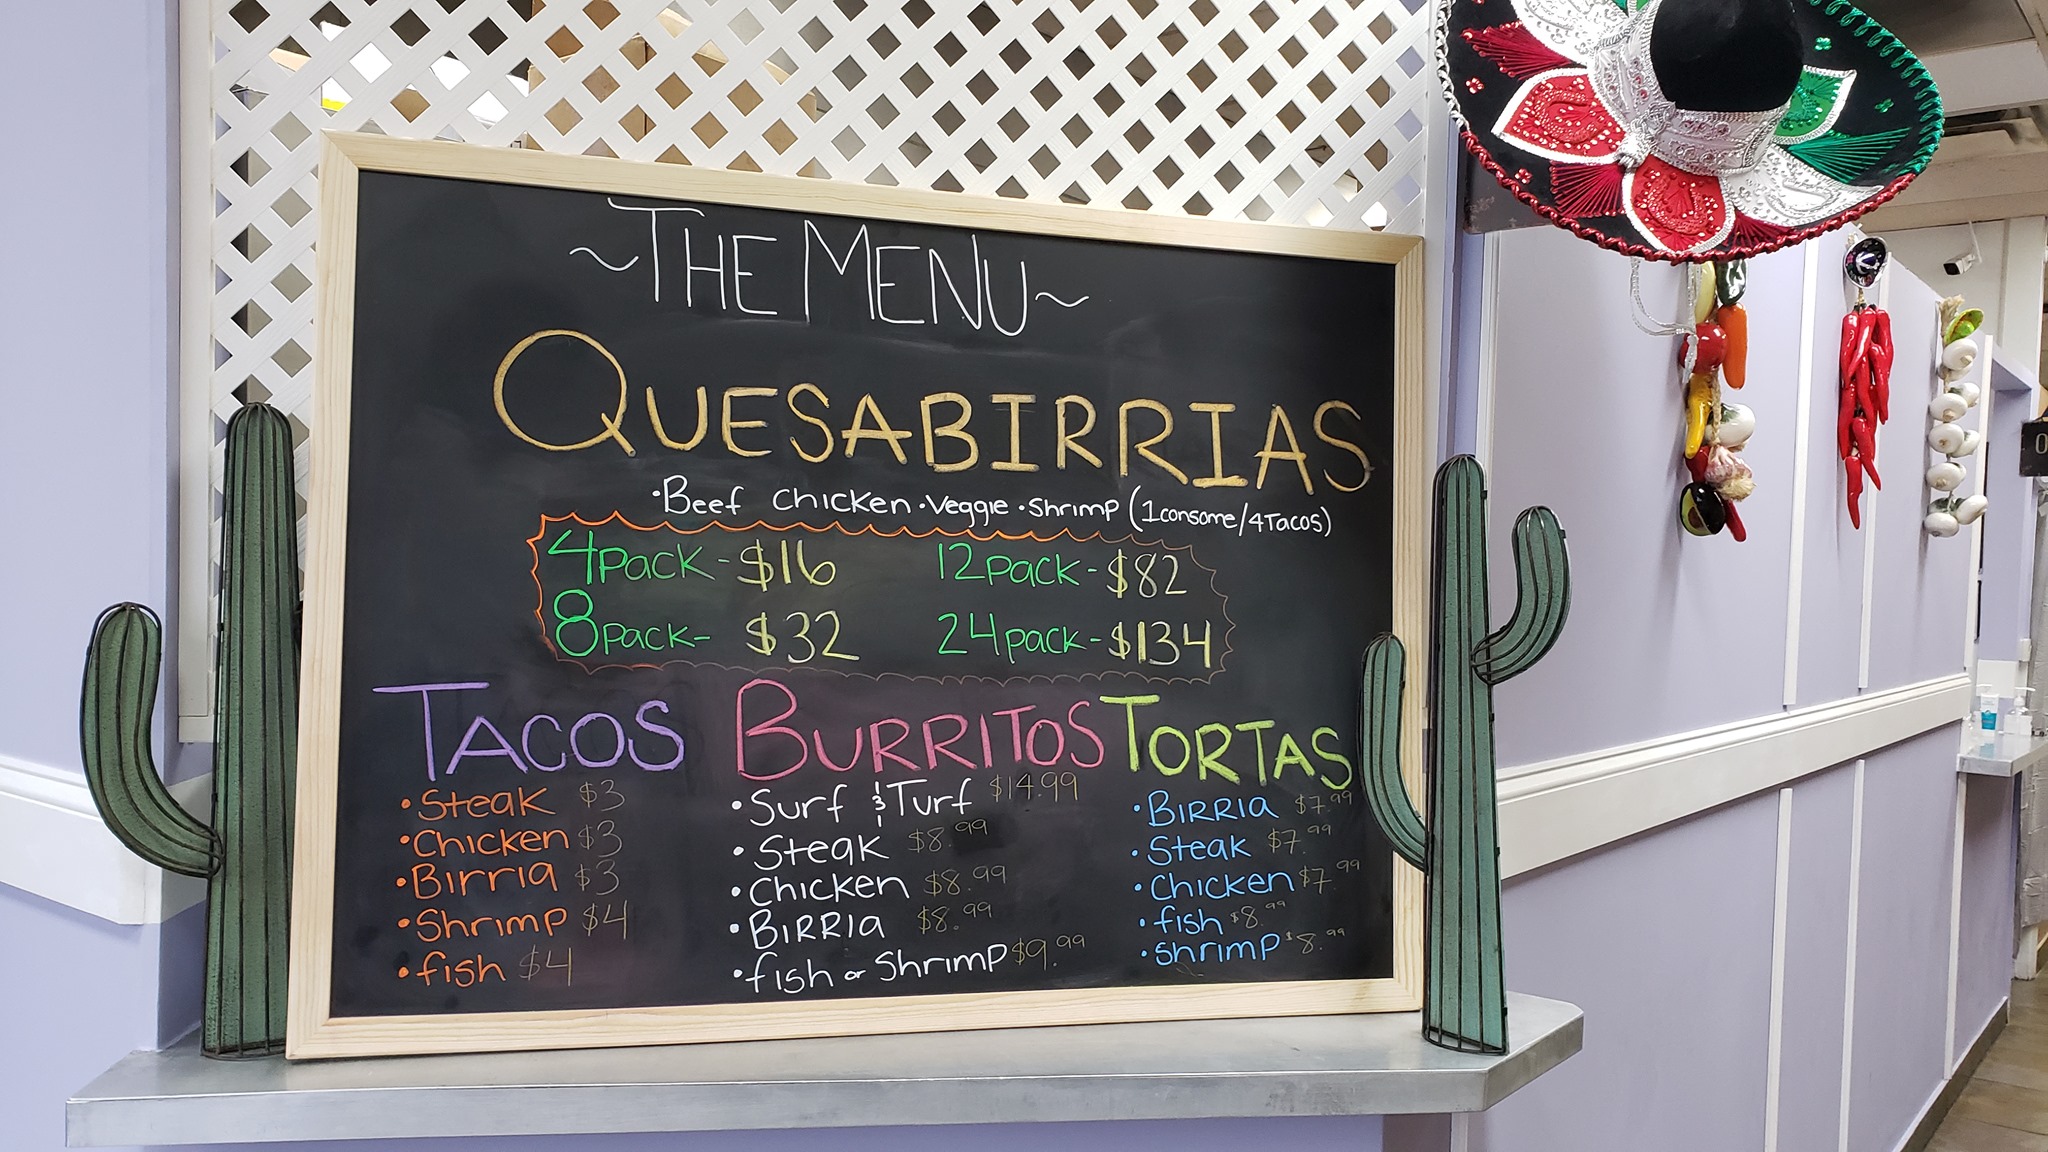 ~THE MENU~
QUESABIRRIAS
·Beef Chicken ·Veggie ·Shrimp (1consome/4Tacos)
4pack - $16 12pack - $82
8pack - $32 24pack - $134
TACOS
•Steak $3
•Chicken $3
•Birria $3
•Shrimp $4
•fish $4
BURRITOS
•Surf & Turf $14.99
•Steak $8.99
•Chicken $8.99
•BIRRIA $8.99
•fish or Shrimp $9.99
TORTAS
•BIRRIA $7.99
•Steak $7.99
•Chicken $7.99
•fish $8.99
•shrimp $8.99